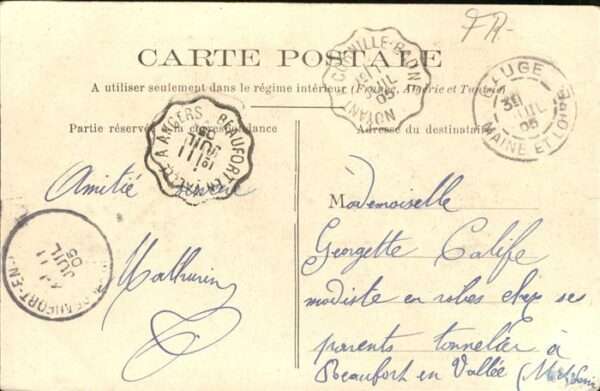 FR-
CARTE POSTALE
A utiliser seulement dans le régime intérieur (France, Algérie et Tunisie)
Partie réservée à la correspondance
Adresse du destinataire
BEAUFORT-EN-VALLÉE A ANGERS
JUIL
05
NOYANT
JUIL
05
BAUGE
JUIL
05
MAINE ET LOIRE
BEAUFORT-EN-
11
JUIL
05
Amitié
Mathurin
Mademoiselle
Georgette Calife
modiste en robes chez ses
parents tonnelier à
Beaufort en Vallée